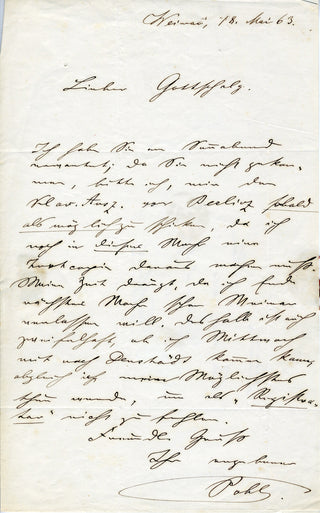 Weimar, 18. Mai 63.
Lieber Gottschalg.
Ich habe Sie am Sonnabend
erwartet; da Sie nicht gekom-
men, bitte ich, mir den
Klav. Ausz. von Berlioz sobald
als möglich zu schicken, da ich
noch in dieser Woche eine
daraus machen muß.
Meine Zeit drängt, da ich Ende
nächster Woche schon Weimar
verlassen will. Deshalb ist auch
zweifelhaft, ob ich Mittwoch
mit nach Denstedt kommen kann,
obgleich ich mein Möglichstes
thun werde, um als „Registra-
tor“ nicht zu fehlen.
Freundl. Gruß
Ihr ergebener
Pohl.